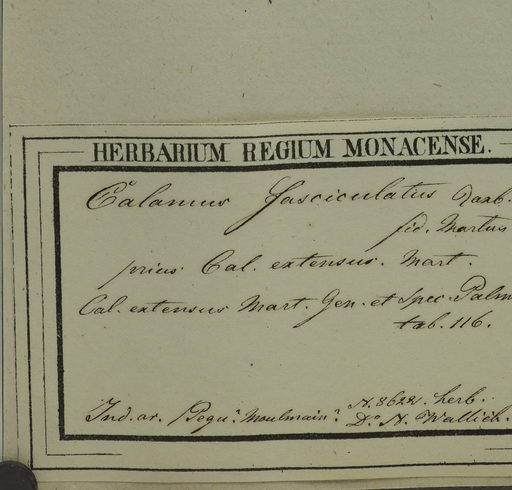 HERBARIUM REGIUM MONACENSE.
Calamus fasciculatus Roxb.
fid. Martius
prius Cal. extensus. Mart.
Cal. extensus Mart. Gen. et Spec. Palm
tab. 116.
N. 8622. herb.
Ind. or. Pegu. Moulmain. D. N. Wallich.